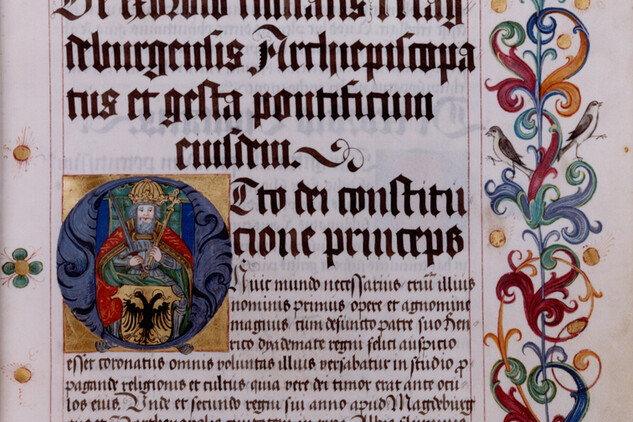 De exordio ciuitatis Mag
deburgensis Archiepiscopa
tus et gesta pontificum
eiusdem.
Otto dei constitu
cione princeps
fuit mundo necessarius illius
nominis primus opere et agnomine
magnus cum defuncto patre suo hen
rico dyademate regni felici auspicio
esset coronatus omnis voluntas illius versabatur in studio ꝓ
pagande religionis et cultus quia vere dei timor erat ante ocu
los eius. Unde et secundo regni sui anno apud Magdeburg